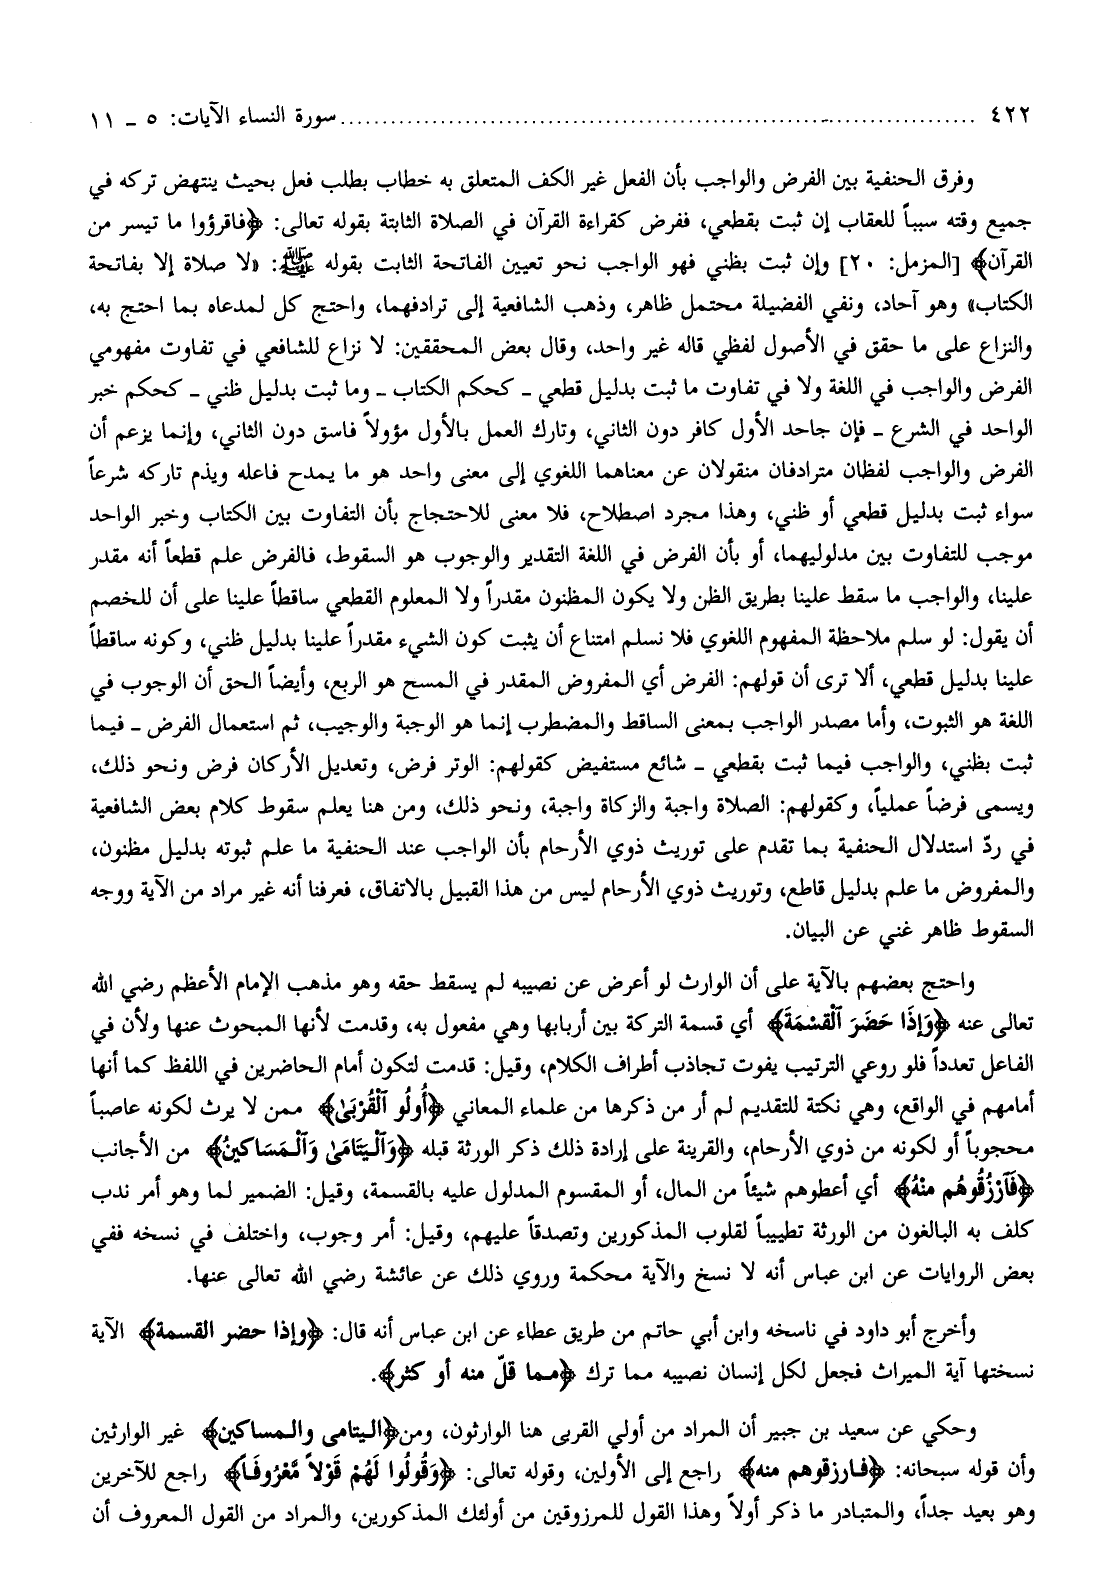 ٤٢٢ ................................................................................ سورة النساء الآيات: ٥ ـ ١١
وفرق الحنفية بين الفرض والواجب بأن الفعل غير الكف المتعلق به خطاب بطلب فعل بحيث ينتهض تركه في
جميع وقته سبباً للعقاب إن ثبت بقطعي، ففرض كقراءة القرآن في الصلاة الثابتة بقوله تعالى: ﴿فاقرؤوا ما تيسر من
القرآن﴾ [المزمل: ٢٠] وإن ثبت بظني فهو الواجب نحو تعيين الفاتحة الثابت بقوله ﷺ: «لا صلاة إلا بفاتحة
الكتاب» وهو آحاد، ونفي الفضيلة محتمل ظاهر، وذهب الشافعية إلى ترادفهما، واحتج كل لمدعاه بما احتج به،
والنزاع على ما حقق في الأصول لفظي قاله غير واحد، وقال بعض المحققين: لا نزاع للشافعي في تفاوت مفهومي
الفرض والواجب في اللغة ولا في تفاوت ما ثبت بدليل قطعي ـ كحكم الكتاب ـ وما ثبت بدليل ظني ـ كحكم خبر
الواحد في الشرع ـ فإن جاحد الأول كافر دون الثاني، وتارك العمل بالأول مؤولاً فاسق دون الثاني، وإنما يزعم أن
الفرض والواجب لفظان مترادفان منقولان عن معناهما اللغوي إلى معنى واحد هو ما يمدح فاعله ويذم تاركه شرعاً
سواء ثبت بدليل قطعي أو ظني، وهذا مجرد اصطلاح، فلا معنى للاحتجاج بأن التفاوت بين الكتاب وخبر الواحد
موجب للتفاوت بين مدلوليهما، أو بأن الفرض في اللغة التقدير والوجوب هو السقوط، فالفرض علم قطعاً أنه مقدر
علينا، والواجب ما سقط علينا بطريق الظن ولا يكون المظنون مقدراً ولا المعلوم القطعي ساقطاً علينا على أن للخصم
أن يقول: لو سلم ملاحظة المفهوم اللغوي فلا نسلم امتناع أن يثبت كون الشيء مقدراً علينا بدليل ظني، وكونه ساقطاً
علينا بدليل قطعي، ألا ترى أن قولهم: الفرض أي المفروض المقدر في المسح هو الربع، وأيضاً الحق أن الوجوب في
اللغة هو الثبوت، وأما مصدر الواجب بمعنى الساقط والمضطرب إنما هو الوجبة والوجيب، ثم استعمال الفرض ـ فيما
ثبت بظني، والواجب فيما ثبت بقطعي ـ شائع مستفيض كقولهم: الوتر فرض، وتعديل الأركان فرض ونحو ذلك،
ويسمى فرضاً عملياً، وكقولهم: الصلاة واجبة والزكاة واجبة، ونحو ذلك، ومن هنا يعلم سقوط كلام بعض الشافعية
في ردّ استدلال الحنفية بما تقدم على توريث ذوي الأرحام بأن الواجب عند الحنفية ما علم ثبوته بدليل مظنون،
والمفروض ما علم بدليل قاطع، وتوريث ذوي الأرحام ليس من هذا القبيل بالاتفاق، فعرفنا أنه غير مراد من الآية ووجه
السقوط ظاهر غني عن البيان.
واحتج بعضهم بالآية على أن الوارث لو أعرض عن نصيبه لم يسقط حقه وهو مذهب الإمام الأعظم رضي الله
تعالى عنه ﴿وَإِذَا حَضَرَ ٱلْقِسْمَةَ﴾ أي قسمة التركة بين أربابها وهي مفعول به، وقدمت لأنها المبحوث عنها ولأن في
الفاعل تعدداً فلو روعي الترتيب يفوت تجاذب أطراف الكلام، وقيل: قدمت لتكون أمام الحاضرين في اللفظ كما أنها
أمامهم في الواقع، وهي نكتة للتقديم لم أر من ذكرها من علماء المعاني ﴿أُولُو ٱلْقُرْبَىٰ﴾ ممن لا يرث لكونه عاصباً
محجوباً أو لكونه من ذوي الأرحام، والقرينة على إرادة ذلك ذكر الورثة قبله ﴿وَٱلْيَتَامَىٰ وَٱلْمَسَاكِينُ﴾ من الأجانب
﴿فَٱرْزُقُوهُم مِنْهُ﴾ أي أعطوهم شيئاً من المال، أو المقسوم المدلول عليه بالقسمة، وقيل: الضمير لما وهو أمر ندب
كلف به البالغون من الورثة تطييباً لقلوب المذكورين وتصدقاً عليهم، وقيل: أمر وجوب، واختلف في نسخه ففي
بعض الروايات عن ابن عباس أنه لا نسخ والآية محكمة وروي ذلك عن عائشة رضي الله تعالى عنها.
وأخرج أبو داود في ناسخه وابن أبي حاتم من طريق عطاء عن ابن عباس أنه قال: ﴿وإذا حضر القسمة﴾ الآية
نسختها آية الميراث فجعل لكل إنسان نصيبه مما ترك ﴿مما قلّ منه أو كثر﴾.
وحكي عن سعيد بن جبير أن المراد من أولي القربى هنا الوارثون، ومن﴿اليتامى والمساكين﴾ غير الوارثين
وأن قوله سبحانه: ﴿فارزقوهم منه﴾ راجع إلى الأولين، وقوله تعالى: ﴿وَقُولُوا لَهُمْ قَوْلاً مَّعْرُوفَاً﴾ راجع للآخرين
وهو بعيد جداً، والمتبادر ما ذكر أولاً وهذا القول للمرزوقين من أولئك المذكورين، والمراد من القول المعروف أن